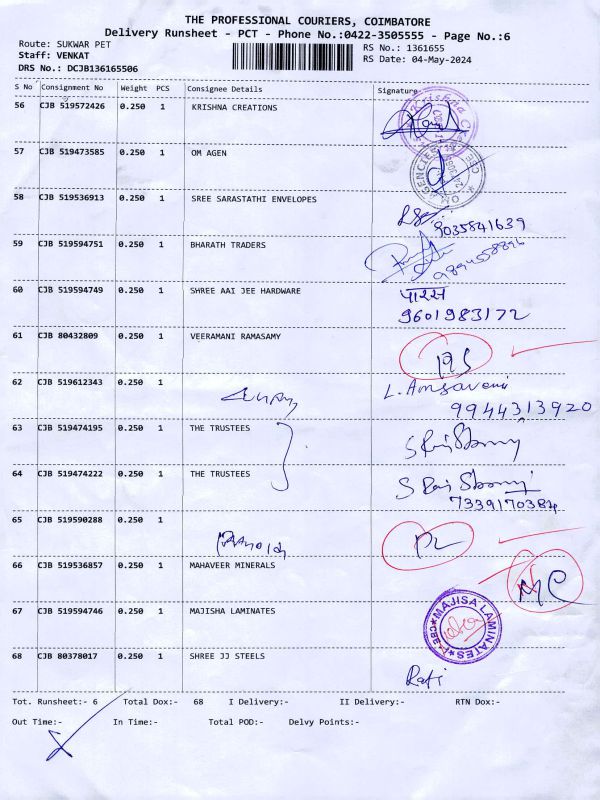 THE PROFESSIONAL COURIERS, COIMBATORE
Delivery Runsheet - PCT - Phone No.:0422-3505555 - Page No.:6
Route: SUKWAR PET
RS No.: 1361655
Staff: VENKAT
RS Date: 04-May-2024
DRS No.: DCJB136165506
S No Consignment No Weight PCS Consignee Details Signature
56 CJB 519572426 0.250 1 KRISHNA CREATIONS
57 CJB 519473585 0.250 1 OM AGEN
OM AGENCIES
58 CJB 519536913 0.250 1 SREE SARASTATHI ENVELOPES
9035841639
59 CJB 519594751 0.250 1 BHARATH TRADERS
9894558896
60 CJB 519594749 0.250 1 SHREE AAI JEE HARDWARE पारस
9601983172
61 CJB 80432809 0.250 1 VEERAMANI RAMASAMY
62 CJB 519612343 0.250 1 L. Amsaveni
9944313920
63 CJB 519474195 0.250 1 THE TRUSTEES
64 CJB 519474222 0.250 1 THE TRUSTEES
7339170384
65 CJB 519590288 0.250 1
66 CJB 519536857 0.250 1 MAHAVEER MINERALS MC
67 CJB 519594746 0.250 1 MAJISHA LAMINATES
MAJISA LAMINATES CBE-1
68 CJB 80378017 0.250 1 SHREE JJ STEELS
Tot. Runsheet:- 6 Total Dox:- 68 I Delivery:- II Delivery:- RTN Dox:-
Out Time:- In Time:- Total POD:- Delvy Points:-